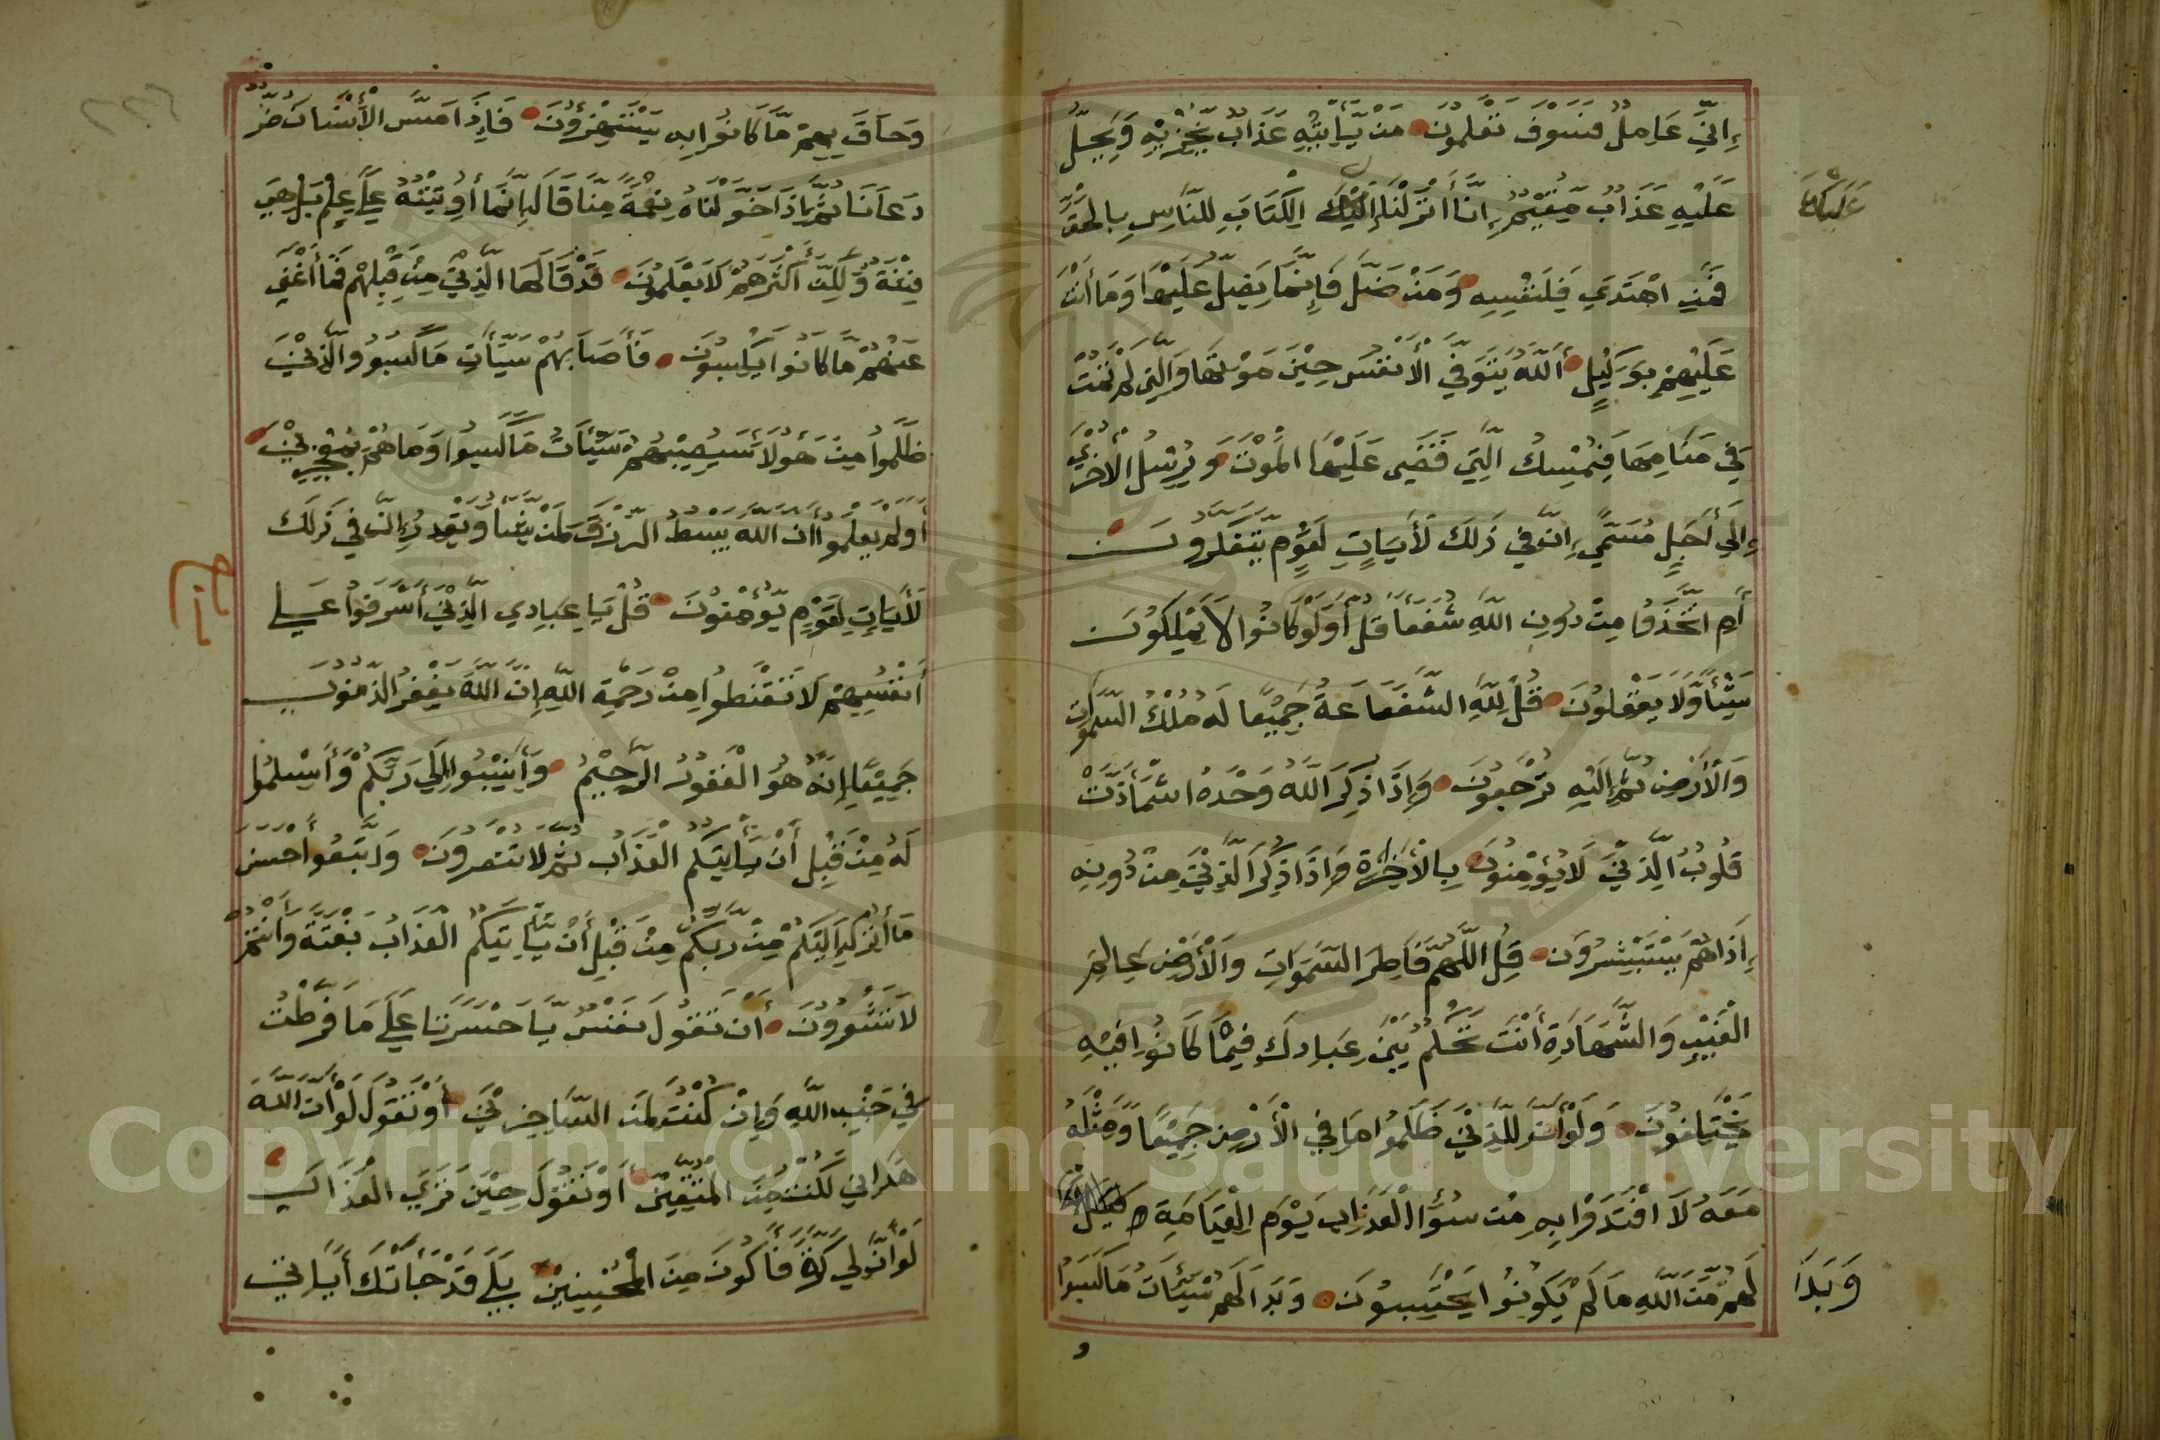 إِنِّي عَامِلٌ فَسَوْفَ تَعْلَمُونَ مَنْ يَّأْتِيْهِ عَذَابٌ يُّخْزِيْهِ وَيَحِلُّ
عَلَيْهِ عَذَابٌ مُّقِيْمٌ إِنَّا أَنْزَلْنَا إِلَيْكَ الْكِتَابَ لِلنَّاسِ بِالْحَقِّ
عَلَيْكَ
فَمَنِ اهْتَدَي فَلِنَفْسِهِ وَمَنْ ضَلَّ فَإِنَّمَا يَضِلُّ عَلَيْهَا وَمَا أَنْتَ
عَلَيْهِمْ بِوَكِيْلٍ أَللَّهُ يَتَوَفَّي الْأَنْفُسَ حِيْنَ مَوْتِهَا وَالَّتِي لَمْ تَمُتْ
فِي مَنَامِهَا فَيُمْسِكُ الَّتِي قَضَي عَلَيْهَا الْمَوْتَ وَيُرْسِلُ الْأُخْرَي
إِلَي أَجَلٍ مُّسَمًّي إِنَّ فِي ذَلِكَ لَأَيَاتٍ لِّقَوْمٍ يَّتَفَكَّرُونَ
أَمِ اتَّخَذُوا مِنْ دُونِ اللَّهِ شُفَعَاءَ قُلْ أَوَلَوْ كَانُوا لَا يَمْلِكُونَ
شَيْئًا وَّلَا يَعْقِلُونَ قُلْ لِلَّهِ الشَّفَاعَةُ جَمِيْعًا لَهُ مُلْكُ السَّمٰوٰتِ
وَالْأَرْضِ ثُمَّ إِلَيْهِ تُرْجَعُونَ وَإِذَا ذُكِرَ اللَّهُ وَحْدَهُ اشْمَأَزَّتْ
قُلُوبُ الَّذِيْنَ لَا يُؤْمِنُونَ بِالْأَخِرَةِ وَإِذَا ذُكِرَ الَّذِيْنَ مِنْ دُونِهِ
إِذَا هُمْ يَسْتَبْشِرُونَ قُلِ اللَّهُمَّ فَاطِرَ السَّمَوَاتِ وَالْأَرْضِ عَالِمَ
الْغَيْبِ وَالشَّهَادَةِ أَنْتَ تَحْكُمُ بَيْنَ عِبَادِكَ فِيْمَا كَانُوا فِيْهِ
يَخْتَلِفُونَ وَلَوْ أَنَّ لِلَّذِيْنَ ظَلَمُوا مَا فِي الْأَرْضِ جَمِيْعًا وَّمِثْلَهُ
مَعَهُ لَا افْتَدَوْا بِهِ مِنْ سُوْءِ الْعَذَابِ يَوْمَ الْقِيَامَةِ
لَهُمْ مِّنَ اللَّهِ مَا لَمْ يَكُونُوا يَحْتَسِبُونَ وَبَدَا لَهُمْ سَيِّئَاتُ مَا كَسَبُوا
وَبَدَا
وَحَاقَ بِهِمْ مَّا كَانُوا بِهِ يَسْتَهْزِؤُنَ فَإِذَا مَسَّ الْأِنْسَانَ ضُرٌّ
دَعَانَا ثُمَّ إِذَا خَوَّلْنَاهُ نِعْمَةً مِّنَّا قَالَ إِنَّمَا أُوْتِيْتُهُ عَلَي عِلْمٍ بَلْ هِيَ
فِتْنَةٌ وَّلَكِنَّ أَكْثَرَهُمْ لَا يَعْلَمُونَ قَدْ قَالَهَا الَّذِيْنَ مِنْ قَبْلِهِمْ فَمَا أَغْنَي
عَنْهُمْ مَّا كَانُوا يَكْسِبُونَ فَأَصَابَهُمْ سَيِّأَتُ مَا كَسَبُوا وَالَّذِيْنَ
ظَلَمُوا مِنْ هَؤُلَاءِ سَيُصِيْبُهُمْ سَيِّئَاتُ مَا كَسَبُوا وَمَا هُمْ بِمُعْجِزِيْنَ
أَوَلَمْ يَعْلَمُوا أَنَّ اللَّهَ يَبْسُطُ الرِّزْقَ لِمَنْ يَّشَاءُ وَيَقْدِرُ إِنَّ فِي ذَلِكَ
لَأَيَاتٍ لِّقَوْمٍ يُّؤْمِنُونَ قُلْ يَا عِبَادِي الَّذِيْنَ أَسْرَفُوا عَلَي
أَنْفُسِهِمْ لَا تَقْنَطُوا مِنْ رَحْمَةِ اللَّهِ إِنَّ اللَّهَ يَغْفِرُ الذُّنُوبَ
جَمِيْعًا إِنَّهُ هُوَ الْغَفُورُ الرَّحِيْمُ وَأَنِيْبُوا إِلَي رَبِّكُمْ وَأَسْلِمُوا
لَهُ مِنْ قَبْلِ أَنْ يَّأْتِيَكُمُ الْعَذَابُ ثُمَّ لَا تُنْصَرُونَ وَاتَّبِعُوا أَحْسَنَ
مَا أُنْزِلَ إِلَيْكُمْ مِّنْ رَّبِّكُمْ مِنْ قَبْلِ أَنْ يَّأْتِيَكُمُ الْعَذَابُ بَغْتَةً وَأَنْتُمْ
لَا تَشْعُرُونَ أَنْ تَقُولَ نَفْسٌ يَّا حَسْرَتَا عَلَي مَا فَرَّطْتُ
فِي جَنْبِ اللَّهِ وَإِنْ كُنْتُ لَمِنَ السَّاخِرِيْنَ أَوْ تَقُولَ لَوْ أَنَّ اللَّهَ
هَدَانِي لَكُنْتُ مِنَ الْمُتَّقِيْنَ أَوْ تَقُولَ حِيْنَ تَرَي الْعَذَابَ
لَوْ أَنَّ لِي كَرَّةً فَأَكُونَ مِنَ الْمُحْسِنِيْنَ بَلَي قَدْ جَاءَتْكَ أَيَاتِي
Copyright © King Saud University